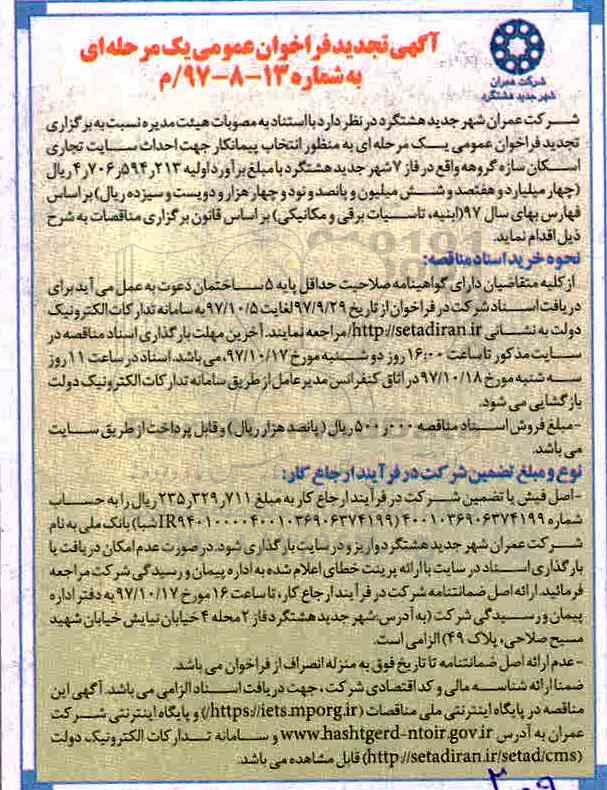 شرکت عمران
شهر جدید هشتگرد
آگهی تجدید فراخوان عمومی یک مرحله‌ای
به شماره ۱۳-۸-۹۷/م
شرکت عمران شهر جدید هشتگرد در نظر دارد با استناد به مصوبات هیئت مدیره نسبت به برگزاری
تجدید فراخوان عمومی یک مرحله ای به منظور انتخاب پیمانکار جهت احداث سایت تجاری
اسکان سازه گروهه واقع در فاز ۷ شهر جدید هشتگرد با مبلغ برآورد اولیه ۴٫۷۰۶٫۵۹۴٫۲۱۳ ریال
(چهار میلیارد و هفتصد و شش میلیون و پانصد و نود و چهار هزار و دویست و سیزده ریال) بر اساس
فهارس بهای سال ۹۷(ابنیه، تاسیات برقی و مکانیکی) بر اساس قانون برگزاری مناقصات به شرح
ذیل اقدام نماید.
نحوه خرید اسناد مناقصه:
از کلیه متقاضیان دارای گواهینامه صلاحیت حداقل پایه ۵ ساختمان دعوت به عمل می آید برای
دریافت اسناد شرکت در فراخوان از تاریخ ۹۷/۹/۲۹ لغایت ۹۷/۱۰/۵ به سامانه تدارکات الکترونیک
دولت به نشانی http://setadiran.ir/ مراجعه نمایند. آخرین مهلت بارگذاری اسناد مناقصه در
سایت مذکور تا ساعت ۱۶:۰۰ روز دوشنبه مورخ ۹۷/۱۰/۱۷، می باشد. اسناد در ساعت ۱۱ روز
سه شنبه مورخ ۹۷/۱۰/۱۸ در اتاق کنفرانس مدیر عامل از طریق سامانه تدارکات الکترونیک دولت
بازگشایی می شود.
-مبلغ فروش اسناد مناقصه ۵۰۰٫۰۰۰ ریال (پانصد هزار ریال) و قابل پرداخت از طریق سایت
می باشد.
نوع و مبلغ تضمین شرکت در فرآیند ارجاع کار:
-اصل فیش یا تضمین شرکت در فرآیند ارجاع کار به مبلغ ۲۳۵٫۳۲۹٫۷۱۱ ریال را به حساب
شماره ۴۰۰۱۰۳۶۹۰۶۳۷۴۱۹۹ (IR۹۴۰۱۰۰۰۰۴۰۰۱۰۳۶۹۰۶۳۷۴۱۹۹شبا) بانک ملی به نام
شرکت عمران شهر جدید هشتگرد واریز و در سایت بارگذاری شود. در صورت عدم امکان دریافت یا
بارگذاری اسناد در سایت با ارائه پرینت خطای اعلام شده به اداره پیمان و رسیدگی شرکت مراجعه
فرمائید. ارائه اصل ضمانتنامه شرکت در فرآیند ارجاع کار، تا ساعت ۱۶ مورخ ۹۷/۱۰/۱۷ به دفتر اداره
پیمان و رسیدگی شرکت (به آدرس: شهر جدید هشتگرد فاز ۲ محله ۴ خیابان نیایش خیابان شهید
مسیح صلاحی، پلاک ۴۹) الزامی است.
-عدم ارائه اصل ضمانتنامه تا تاریخ فوق به منزله انصراف از فراخوان می باشد.
ضمنا ارائه شناسه مالی و کد اقتصادی شرکت، جهت دریافت اسناد الزامی می باشد. آگهی این
مناقصه در پایگاه اینترنتی ملی مناقصات (https://iets.mporg.ir/) و پایگاه اینترنتی شرکت
عمران به آدرس www.hashtgerd-ntoir.gov.ir و سامانه تدارکات الکترونیک دولت
(http://setadiran.ir/setad/cms) قابل مشاهده می باشد.